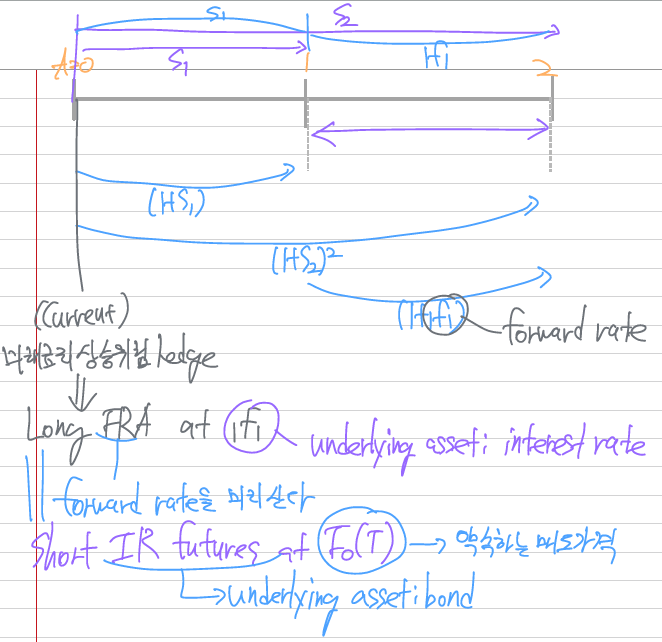 S₁ S₂
S₁ 1f1
t=0 1 2
(1+S₁)
(1+S₂)²
(1+1f1) forward rate
(Current)
미래금리상승위험 hedge
⇓
Long FRA at 1f1 underlying asset: interest rate
|| forward rate을 미리 산다
Short IR futures at F₀(T) → 약속하는 매도가격
→ underlying asset: bond